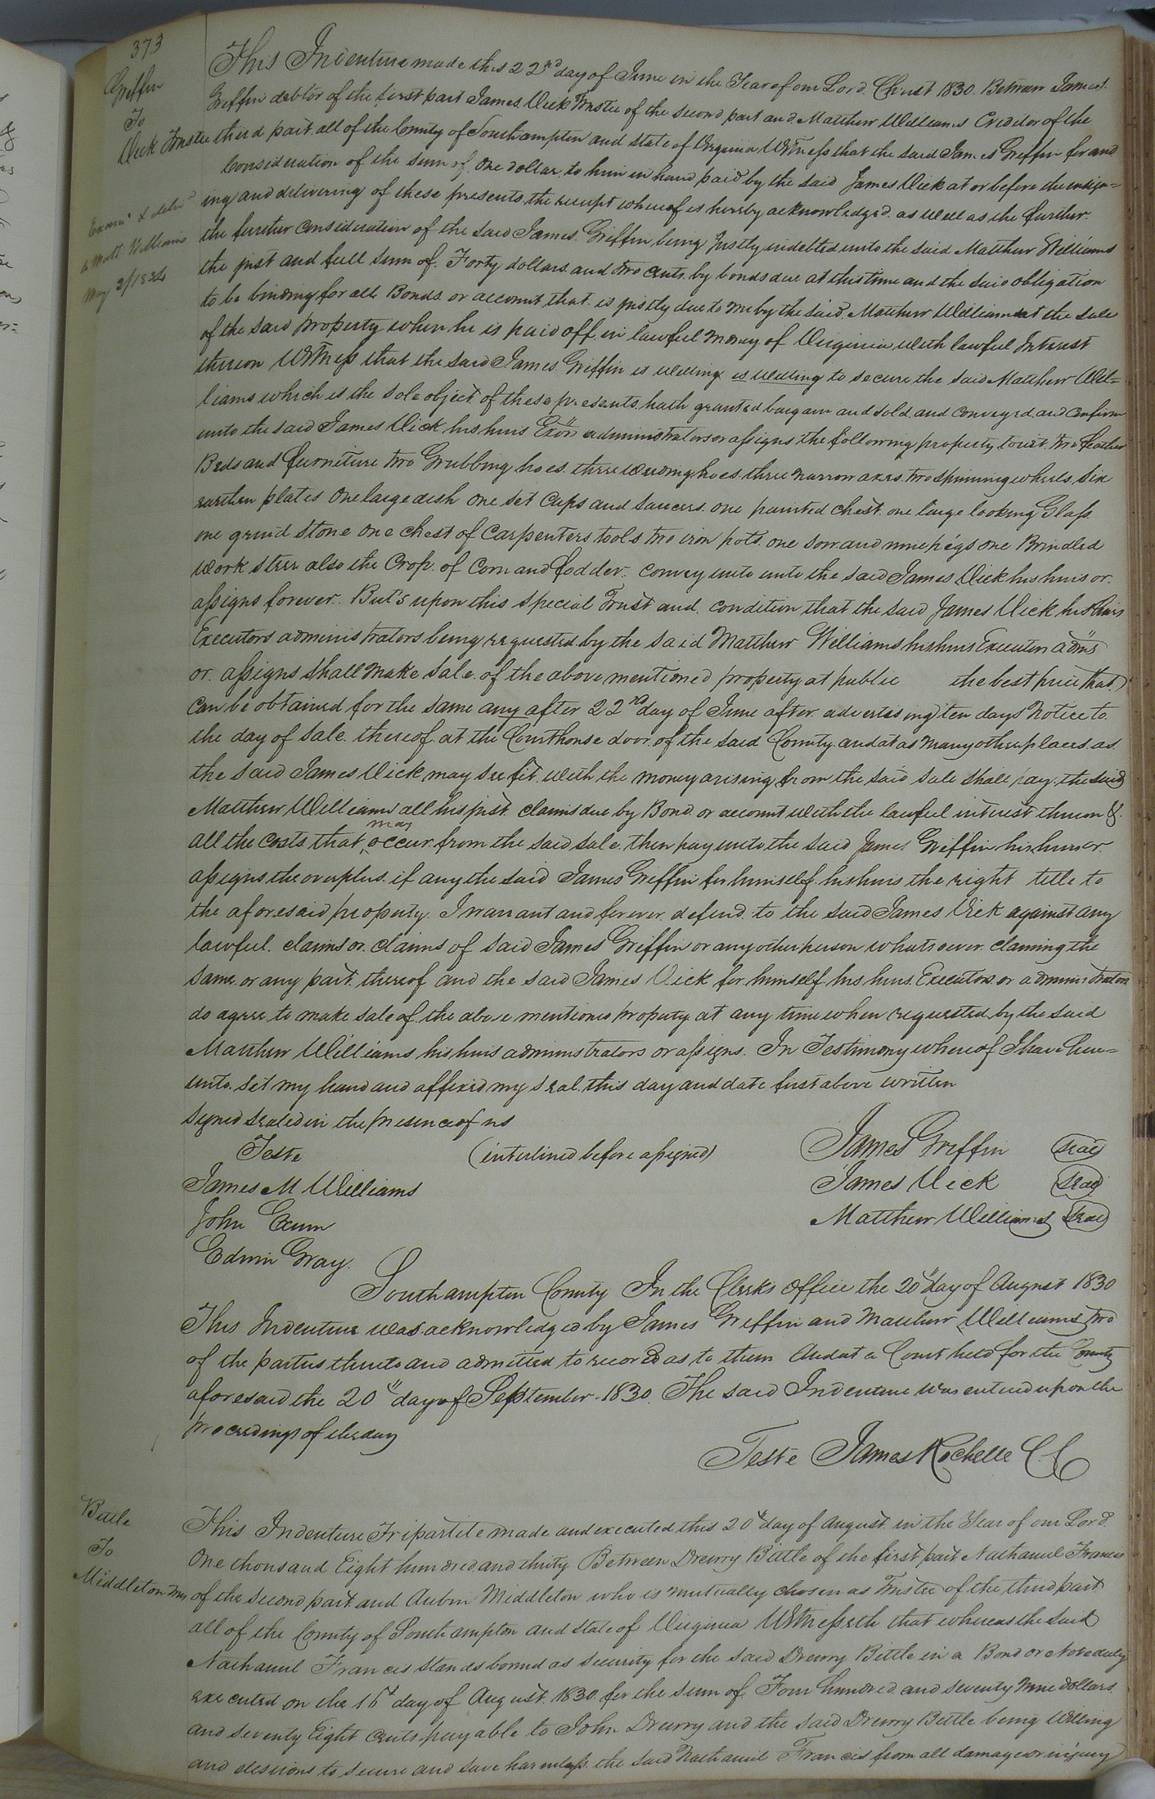 373
Griffin
To
Vick Trustee
Exam<sup>d</sup> & deliv<sup>d</sup>
to Matt Williams
May 2/1834
This Indenture made this 22nd day of June in the Year of our Lord Christ 1830. Between James
Griffin debtor of the first part James Vick Trustee of the second part and Matthew Williams Creditor of the
third part all of the County of Southampton and state of Virginia Witness that the said James Griffin for and
Consideration of the sum of One dollar to him in hand paid by the said James Vick at or before the ensign=
ing and delivering of these presents the receipt whereof is hereby acknowledged as well as the further
the further consideration of the said James Griffin being Justly indebted unto the said Matthew Williams
the just and full sum of Forty dollars and two cents by bonds due at this time and the said obligation
to be binding for all Bonds or account that is justly due to me by the said Matthew Williams at the sale
of the said property when he is paid off in lawful money of Virginia with lawful Interest
thereon Witness that the said James Griffin is willing is willing to secure the said Matthew Wil=
liams which is the sole object of these presents hath granted bargain and sold and conveyed and confirm
unto the said James Vick his heirs Exōrs administrators or assigns the following property towit two feather
Beds and furniture two Grubbing hoes three weeding hoes three narrow axes two spinning wheels six
earthen plates One large dish one set Cups and saucers one painted chest one large looking Glass
one grind stone one chest of Carpenters tools two iron pots one sow and nine pigs one Brindled
work steer also the Crop of Corn and fodder. convey unto unto the said James Vick his heirs or
assigns forever. But's upon this special Trust and condition that the said James Vick his heirs
Executors administrators being requested by the said Matthew Williams his heirs Executors adm̄rs
or assigns shall make sale of the above mentioned property at public the best price that
can be obtained for the same any after 22nd day of June after advertising ten days Notice to
the day of sale thereof at the Courthouse door of the said County and at as many other places as
the said James Vick may see fit with the money arising from the said sale shall pay the said
Matthew Williams all his just claims due by Bond or account with the lawful interest thereon &
all the costs that may occur from the said sale then pay unto the said James Griffin his heirs or
assigns the overplus if any the said James Griffin for himself his heirs the right title to
the aforesaid property. I warrant and forever defend to the said James Vick against any
lawful claims or claims of said James Griffin or any other person whatsoever claiming the
same or any part thereof and the said James Vick for himself his heirs Executors or administrators
do agree to make sale of the above mentioned property at any time when requested by the said
Matthew Williams his heirs administrators or assigns. In Testimony whereof I have here=
unto set my hand and affixed my seal this day and date first above written
signed sealed in the presence of us
Teste (interlined before assigned) James Griffin Seal
James M Williams James Vick Seal
John Exum Matthew Williams Seal
Edwin Gray.
Southampton County In the Clerks Office the 20th day of August 1830
This Indenture was acknowledged by James Griffin and Matthew Williams two
of the parties thereto and admitted to record as to them And at a Court held for the County
aforesaid the 20th day of September 1830. The said Indenture was entered upon the
proceedings of the day
Teste James Rochelle CC
Bittle
To
Middleton Trus
This Indenture Tripartite made and executed this 20th day of August in the Year of our Lord
One thousand Eight hundred and thirty Between Drewry Bittle of the first part Nathaniel Francis
of the second part and Auben Middleton who is mutually chosen as Trustee of the third part
all of the County of Southampton and state of Virginia Witnesseth that whereas the said
Nathaniel Francis stands bound as security for the said Drewry Bittle in a Bond or Note duly
executed on the 16th day of August 1830 for the sum of Four hundred and seventy Nine dollars
and seventy Eight cents payable to John Drewry and the said Drewry Bittle being willing
and desirous to secure and save harmless the said Nathaniel Francis from all damage or injury